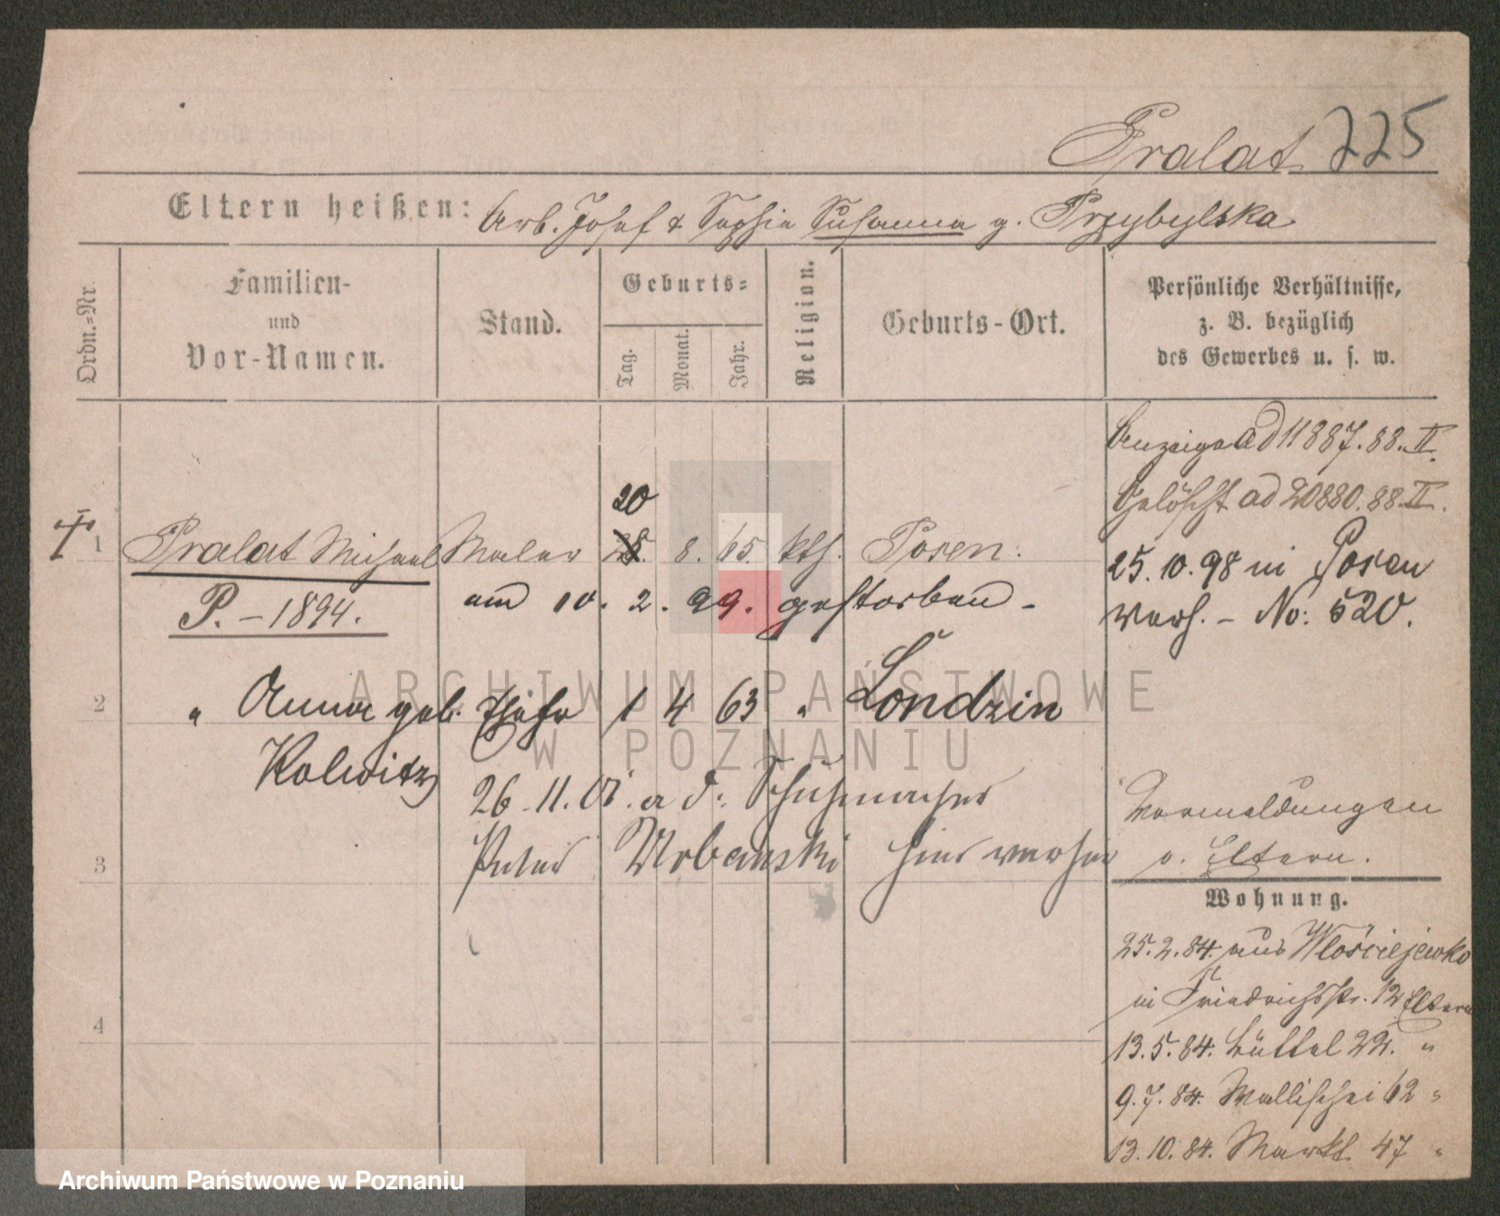 Pralat 225
Eltern heißen: Arb. Josef & Sophie Susanna g. Przybylska
Ordn.-Nr.
Familien-
und
Vor-Namen.
Stand.
Geburts-
Tag.
Monat.
Jahr.
Religion.
Geburts-Ort.
Persönliche Verhältnisse,
z. B. bezüglich
des Gewerbes u. s. w.
Anzeige ad 11887.88.II.
Gelöscht ad 20880.88.II.
20
1 Pralat Michael Maler 8. 65. kth. Posen.
25.10.98 in Posen
P. - 1894.
am 10. 2. 99. gestorben -
verh. - No: 520.
2 " Anna geb. Ehefr 1 4 63 " Londzin
Kolwitz
26.11.01. a d. Schuhmacher
Vormeldungen
3 Peter Urbanski hier verhei
v. Eltern.
Wohnung.
25.2.84. aus Włościejewko
in Friedrichsstr. 12 Eltern
4
13.5.84. Büttel 22. "
9.7.84. Wallischei 62 "
13.10.84. Markt 47 "
ARCHIWUM PAŃSTWOWE
W POZNANIU
Archiwum Państwowe w Poznaniu